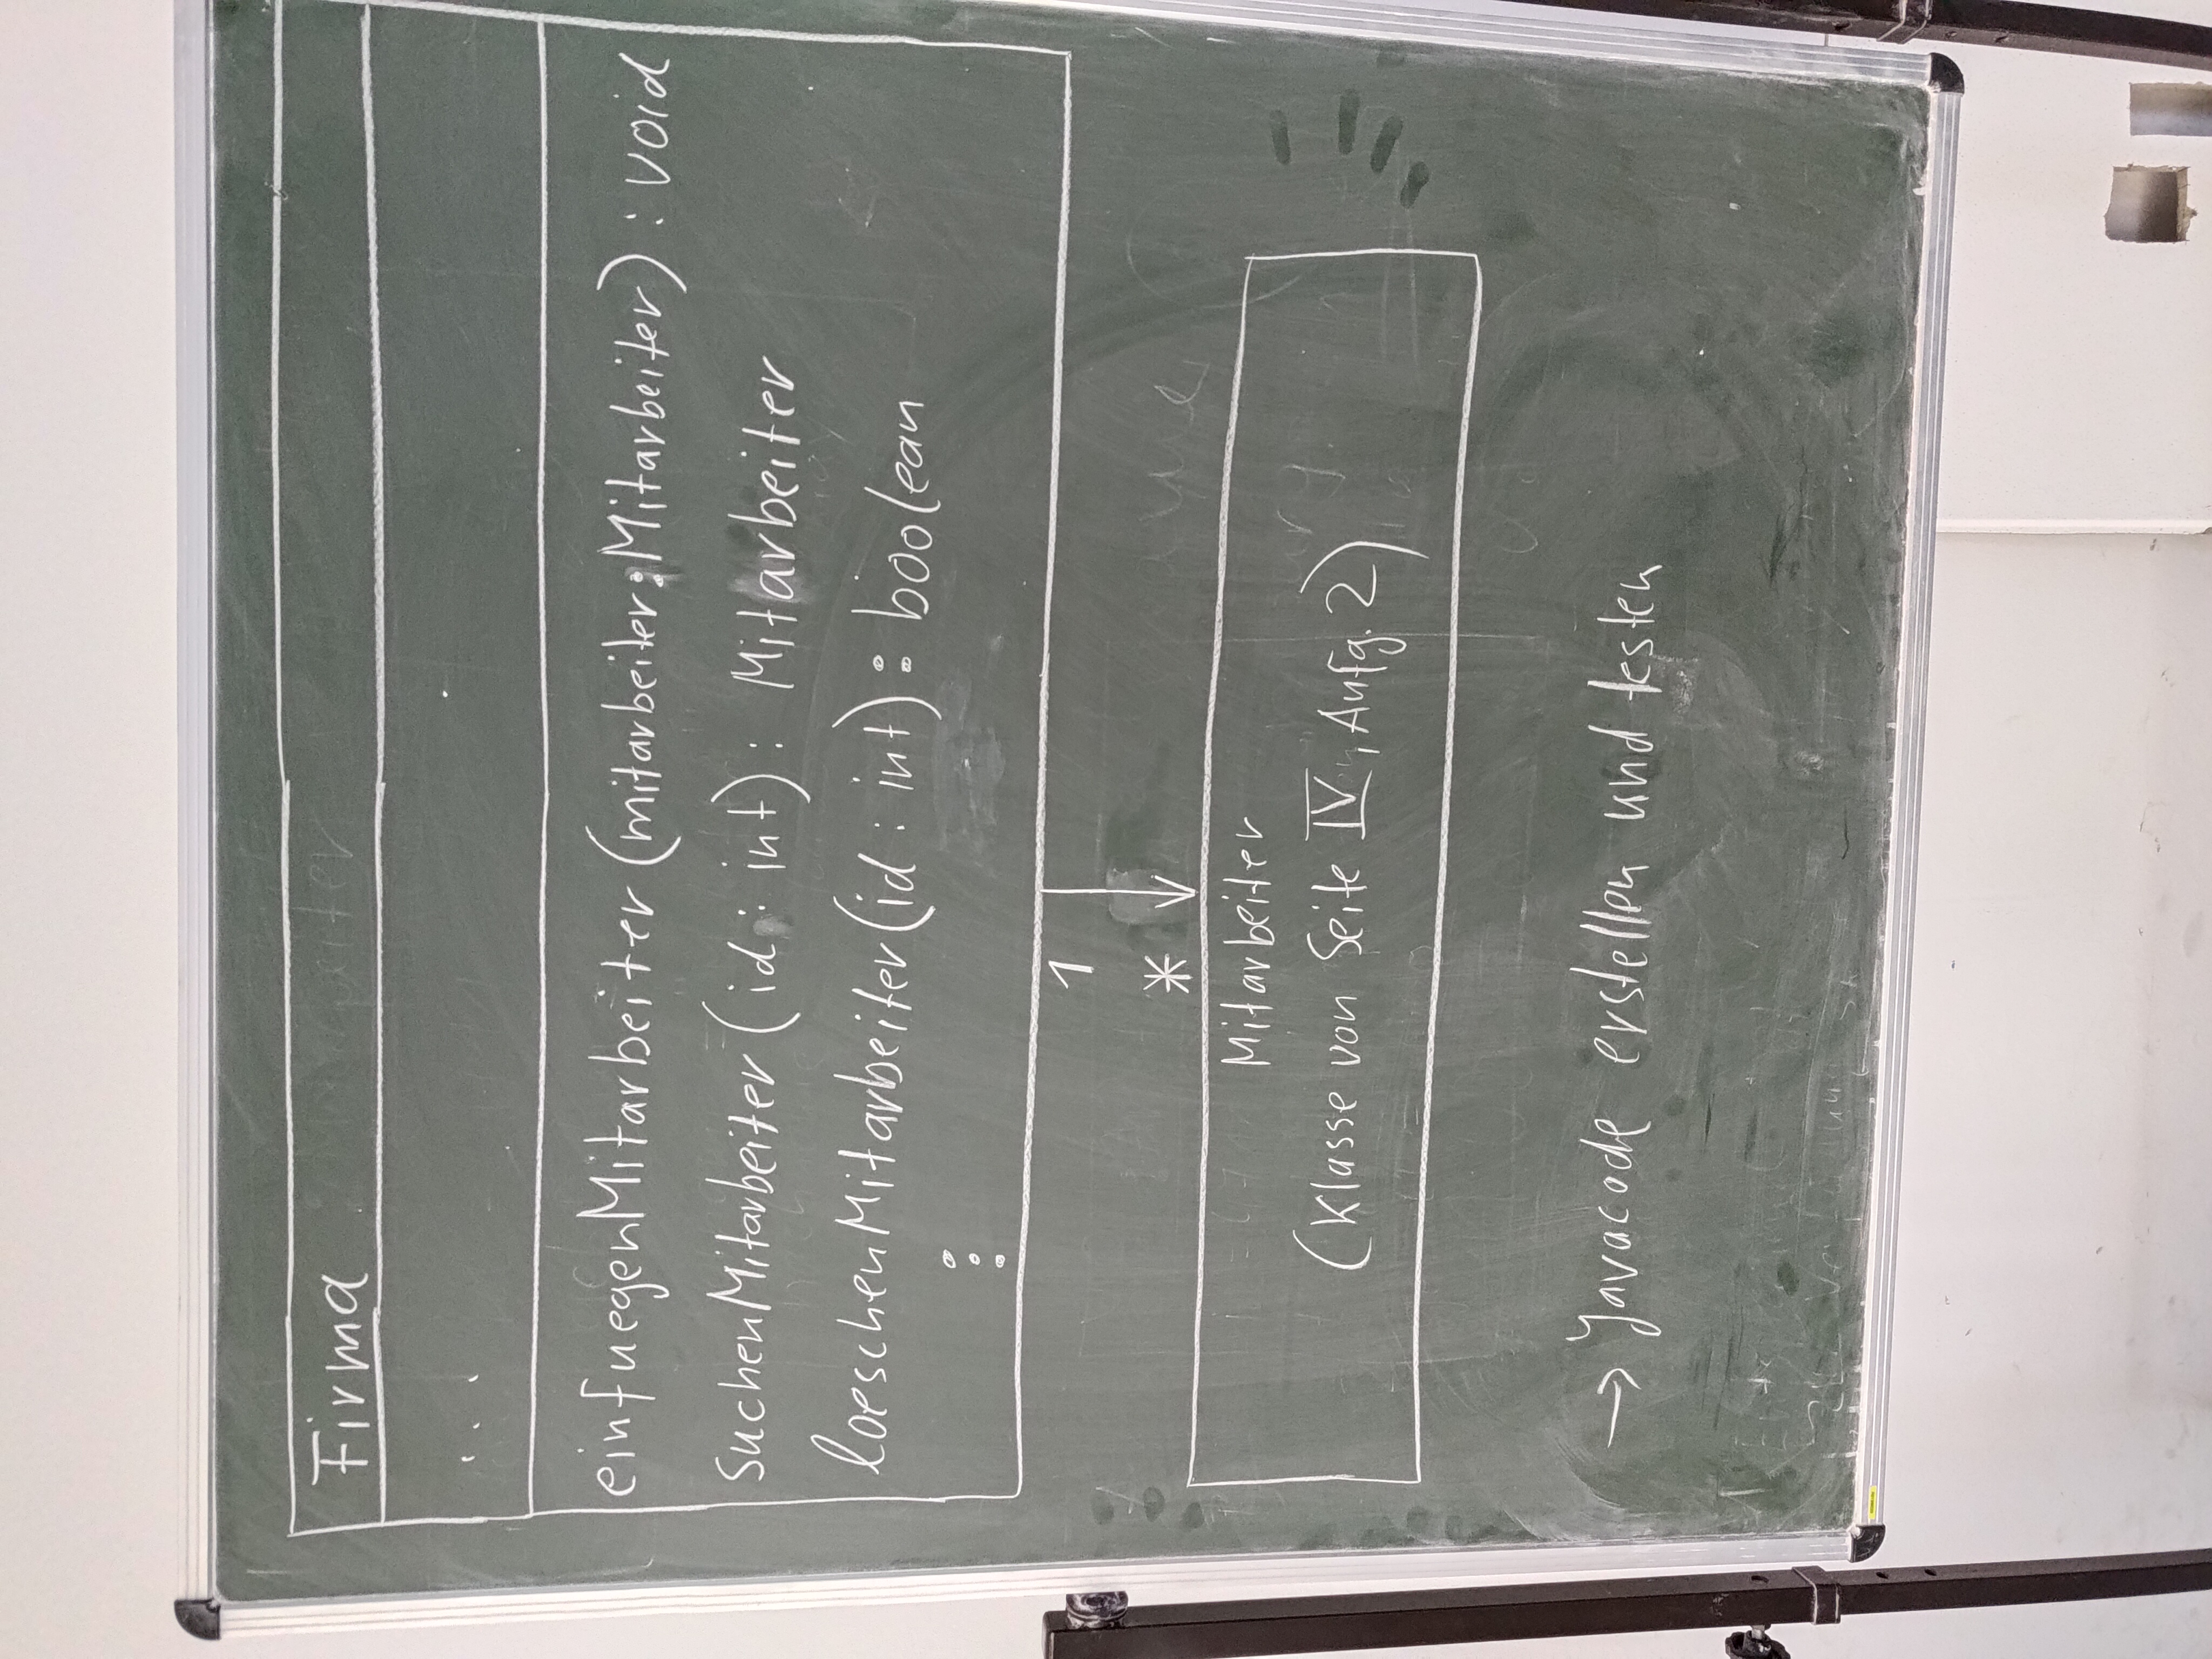 Firma
...
einfuegenMitarbeiter (mitarbeiter : Mitarbeiter) : void
suchenMitarbeiter (id : int) : Mitarbeiter
loeschenMitarbeiter (id : int) : boolean
⋮
1
*
Mitarbeiter
(Klasse von Seite IV, Aufg. 2)
→ Javacode erstellen und testen